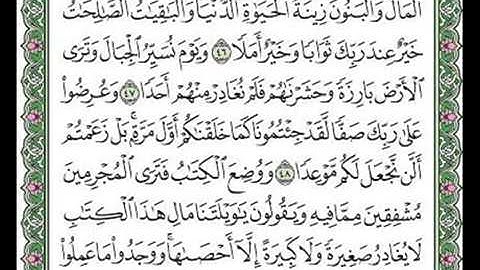 ٱلْمَالُ وَٱلْبَنُونَ زِينَةُ ٱلْحَيَوٰةِ ٱلدُّنْيَا وَٱلْبَٰقِيَٰتُ ٱلصَّٰلِحَٰتُ
خَيْرٌ عِندَ رَبِّكَ ثَوَابًا وَخَيْرٌ أَمَلًا ٤٦ وَيَوْمَ نُسَيِّرُ ٱلْجِبَالَ وَتَرَى
ٱلْأَرْضَ بَارِزَةً وَحَشَرْنَٰهُمْ فَلَمْ نُغَادِرْ مِنْهُمْ أَحَدًا ٤٧ وَعُرِضُوا۟
عَلَىٰ رَبِّكَ صَفًّا لَّقَدْ جِئْتُمُونَا كَمَا خَلَقْنَٰكُمْ أَوَّلَ مَرَّةٍۭ ۚ بَلْ زَعَمْتُمْ
أَلَّن نَّجْعَلَ لَكُم مَّوْعِدًا ٤٨ وَوُضِعَ ٱلْكِتَٰبُ فَتَرَى ٱلْمُجْرِمِينَ
مُشْفِقِينَ مِمَّا فِيهِ وَيَقُولُونَ يَٰوَيْلَتَنَا مَالِ هَٰذَا ٱلْكِتَٰبِ
لَا يُغَادِرُ صَغِيرَةً وَلَا كَبِيرَةً إِلَّآ أَحْصَىٰهَا ۚ وَوَجَدُوا۟ مَا عَمِلُوا۟